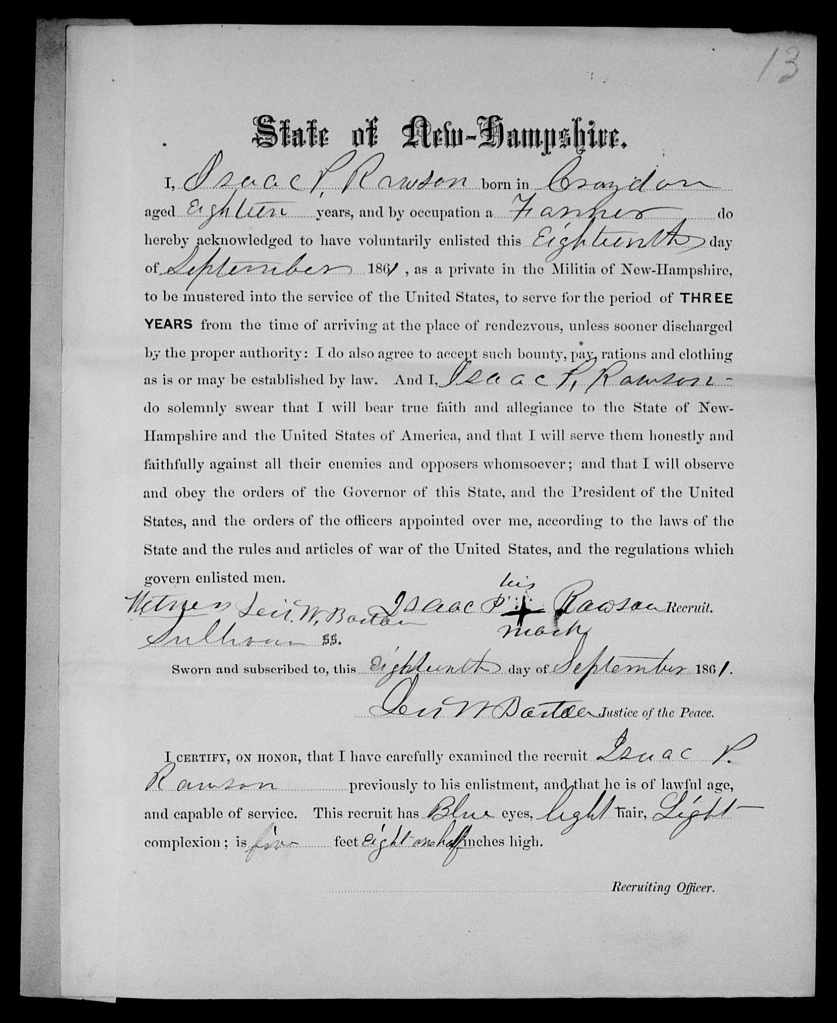 13
State of New-Hampshire.
I, Isaac P. Rawson born in Croydon
aged Eighteen years, and by occupation a Farmer do
hereby acknowledged to have voluntarily enlisted this Eighteenth day
of September 1861, as a private in the Militia of New-Hampshire,
to be mustered into the service of the United States, to serve for the period of THREE
YEARS from the time of arriving at the place of rendezvous, unless sooner discharged
by the proper authority: I do also agree to accept such bounty, pay, rations and clothing
as is or may be established by law. And I, Isaac P. Rawson-
do solemnly swear that I will bear true faith and allegiance to the State of New-
Hampshire and the United States of America, and that I will serve them honestly and
faithfully against all their enemies and opposers whomsoever; and that I will observe
and obey the orders of the Governor of this State, and the President of the United
States, and the orders of the officers appointed over me, according to the laws of the
State and the rules and articles of war of the United States, and the regulations which
govern enlisted men.
his
Witness Levi W. Barton Isaac P + Rawson Recruit.
mark
Sullivan ss.
Sworn and subscribed to, this eighteenth day of September 1861.
Levi W Barton Justice of the Peace.
I CERTIFY, ON HONOR, that I have carefully examined the recruit Isaac P.
Rawson previously to his enlistment, and that he is of lawful age,
and capable of service. This recruit has Blue eyes, light hair, Light
complexion; is five feet eight one half inches high.
Recruiting Officer.